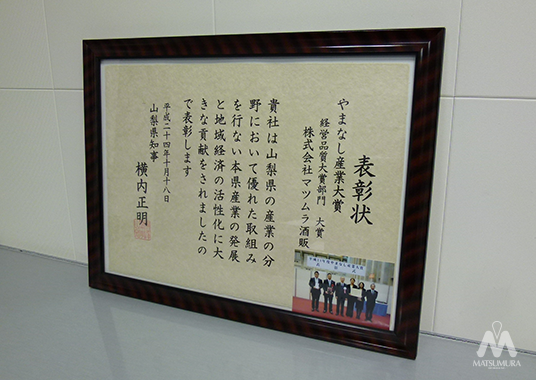 表彰状
やまなし産業大賞
経営品質大賞部門　大賞
株式会社マツムラ酒販
貴社は山梨県の産業の分
野において優れた取組み
を行ない本県産業の発展
と地域経済の活性化に大
きな貢献をされましたの
で表彰します
平成二十四年十月十八日
山梨県知事
横内正明
MATSUMURA